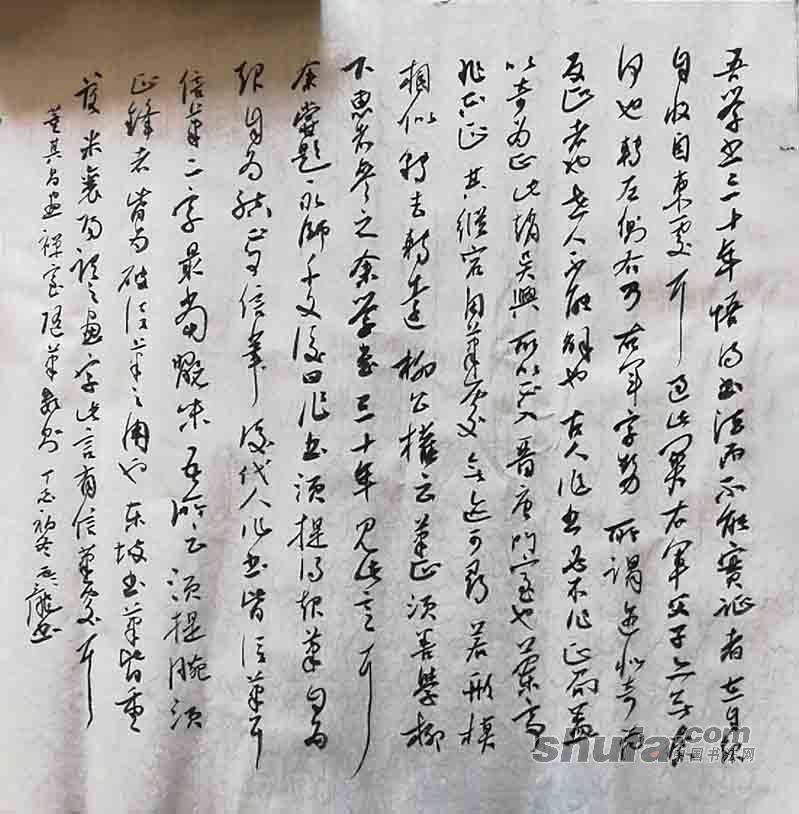 吾学书三十年悟得书法而不能实证者在自起
自收自束处耳过此关右军父子亦无奈
何也转左侧右乃右军字势所谓迹似奇而
反正者也世人不能解也古人作书必不作正局盖
以奇为正此赵吴兴所以不入晋唐门室也兰亭
非不正其纵宕用笔处无迹可寻若形模
相似转去转远柳公权云笔正须善学柳
下惠者参之余学书三十年见此意耳
余尝题永师千文后曰作书须提得起笔自为
起自为结不可信笔后代人作书皆信笔耳
信笔二字最当玩味吾所云须提腕须
正锋者皆为破信笔之用也东坡书笔皆重
落米襄阳谓之画字此言有信笔处耳
董其昌画禅室随笔数则
shufa.com
中国书法网